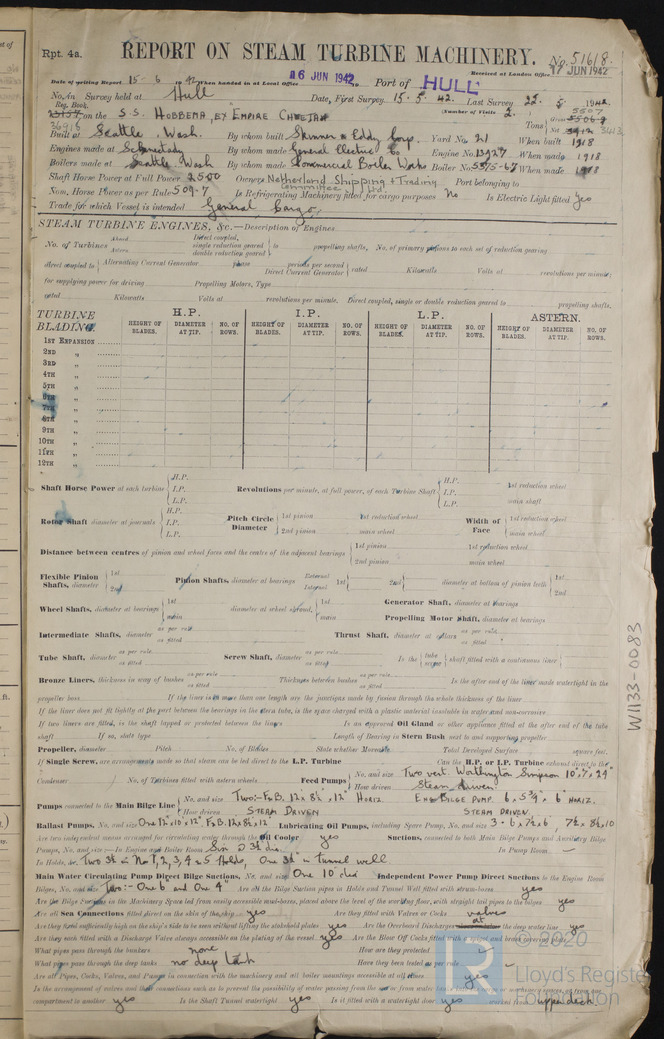 Rpt. 4a.
REPORT ON STEAM TURBINE MACHINERY. No. 51618
17 JUN 1942
Date of writing Report 15-6 1942 When handed in at Local Office 16 JUN 1942 Port of HULL Received at London Office
No. in Reg. Book. Survey held at Hull Date, First Survey 15.5.42. Last Survey 22.5.1942
(Number of Visits 2.
on the S.S. HOBBEMA, EX EMPIRE CHEETAH Tons
Built at Seattle. Wash. By whom built Skinner & Eddy Corp. Yard No. 21 When built 1918
Engines made at Schenectady By whom made General Electric Co Engine No. When made 1918
Boilers made at Seattle Wash By whom made Commercial Boiler Works Boiler No. 5575-67 When made 1918
Shaft Horse Power at Full Power 2500 Owners Netherland Shipping & Trading Committee Ltd Port belonging to
Nom. Horse Power as per Rule 509.7 Is Refrigerating Machinery fitted for cargo purposes No Is Electric Light fitted Yes
Trade for which Vessel is intended General Cargo
STEAM TURBINE ENGINES, &c.—Description of Engines
No. of Turbines Ahead Astern Direct coupled, single reduction geared double reduction geared to propelling shafts. No. of primary pinions to each set of reduction gearing
direct coupled to Alternating Current Generator phase periods per second Direct Current Generator rated Kilowatts Volts at revolutions per minute;
for supplying power for driving Propelling Motors, Type
rated Kilowatts Volts at revolutions per minute. Direct coupled, single or double reduction geared to propelling shafts.
TURBINE BLADING. H.P. I.P. L.P. ASTERN.
HEIGHT OF BLADES. DIAMETER AT TIP. NO. OF ROWS. HEIGHT OF BLADES. DIAMETER AT TIP. NO. OF ROWS. HEIGHT OF BLADES. DIAMETER AT TIP. NO. OF ROWS. HEIGHT OF BLADES. DIAMETER AT TIP. NO. OF ROWS.
1ST EXPANSION
2ND „
3RD „
4TH „
5TH „
6TH „
7TH „
8TH „
9TH „
10TH „
11TH „
12TH „
Shaft Horse Power at each turbine H.P. I.P. L.P. Revolutions per minute, at full power, of each Turbine Shaft H.P. I.P. L.P. 1st reduction wheel main shaft
Rotor Shaft diameter at journals H.P. I.P. L.P. Pitch Circle Diameter 1st pinion 2nd pinion 1st reduction wheel main wheel Width of Face 1st reduction wheel main wheel
Distance between centres of pinion and wheel faces and the centre of the adjacent bearings 1st pinion 2nd pinion 1st reduction wheel main wheel
Flexible Pinion Shafts, diameter 1st 2nd Pinion Shafts, diameter at bearings External Internal 1st 2nd diameter at bottom of pinion teeth 1st 2nd
Wheel Shafts, diameter at bearings 1st main diameter at wheel shroud, 1st main Generator Shaft, diameter at bearings
Propelling Motor Shaft, diameter at bearings
Intermediate Shafts, diameter as per rule as fitted Thrust Shaft, diameter at collars as per rule as fitted
Tube Shaft, diameter as per rule as fitted Screw Shaft, diameter as per rule as fitted Is the tube screw shaft fitted with a continuous liner
Bronze Liners, thickness in way of bushes as per rule as fitted Thickness between bushes as per rule as fitted Is the after end of the liner made watertight in the
propeller boss If the liner is in more than one length are the junctions made by fusion through the whole thickness of the liner
If the liner does not fit tightly at the part between the bearings in the stern tube, is the space charged with a plastic material insoluble in water and non-corrosive
If two liners are fitted, is the shaft lapped or protected between the liners Is an approved Oil Gland or other appliance fitted at the after end of the tube
shaft If so, state type Length of Bearing in Stern Bush next to and supporting propeller
Propeller, diameter Pitch No. of Blades State whether Moveable Total Developed Surface square feet.
If Single Screw, are arrangements made so that steam can be led direct to the L.P. Turbine Can the H.P. or I.P. Turbine exhaust direct to the
Condenser No. of Turbines fitted with astern wheels Feed Pumps No. and size Two vert. Worthington Simpson 10".7".24"
How driven Steam driven
Pumps connected to the Main Bilge Line No. and size Two:- F&B. 12x8½x12" HORIZ ENG BILGE PUMP. 6x5¾x6" HORIZ.
How driven STEAM DRIVEN STEAM DRIVEN
Ballast Pumps, No. and size One 12"x10"x12" F&B 12x8½x12" Lubricating Oil Pumps, including Spare Pump, No. and size 3-6x7½x6, 7½x8½x10
Are two independent means arranged for circulating water through the Oil Cooler yes Suctions, connected to both Main Bilge Pumps and Auxiliary Bilge
Pumps, No. and size:—In Engine and Boiler Room Six @ 3½ dia In Pump Room —
In Holds, &c. Two 3½ in No 1, 2, 3, 4 & 5 holds, One 3½" in tunnel well
Main Water Circulating Pump Direct Bilge Suctions, No. and size One 10" dia Independent Power Pump Direct Suctions to the Engine Room
Bilges, No. and size Two:- One 6" and One 4" Are all the Bilge Suction pipes in Holds and Tunnel Well fitted with strum-boxes yes
Are the Bilge Suctions in the Machinery Space led from easily accessible mud-boxes, placed above the level of the working floor, with straight tail pipes to the bilges yes
Are all Sea Connections fitted direct on the skin of the ship yes Are they fitted with Valves or Cocks valves
Are they fixed sufficiently high on the ship's side to be seen without lifting the stokehold plates yes Are the Overboard Discharges at the deep water line yes
Are they each fitted with a Discharge Valve always accessible on the plating of the vessel yes Are the Blow Off Cocks fitted with a spigot and brass covering plate
What pipes pass through the bunkers none How are they protected —
What pipes pass through the deep tanks no deep tank Have they been tested as per rule —
Are all Pipes, Cocks, Valves, and Pumps in connection with the machinery and all boiler mountings accessible at all times yes
Is the arrangement of valves and their connections such as to prevent the possibility of water passing from the
compartment to another yes Is the Shaft Tunnel watertight yes Is it fitted with a watertight door yes worked from upper deck
W1133-0083
© 2020
Lloyd's Register
Foundation